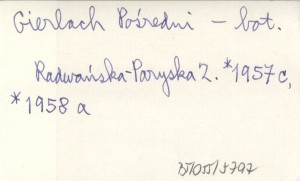 Gierlach Pośredni – bot.
Radwańska-Paryska Z. *1957 c,
*1958 a